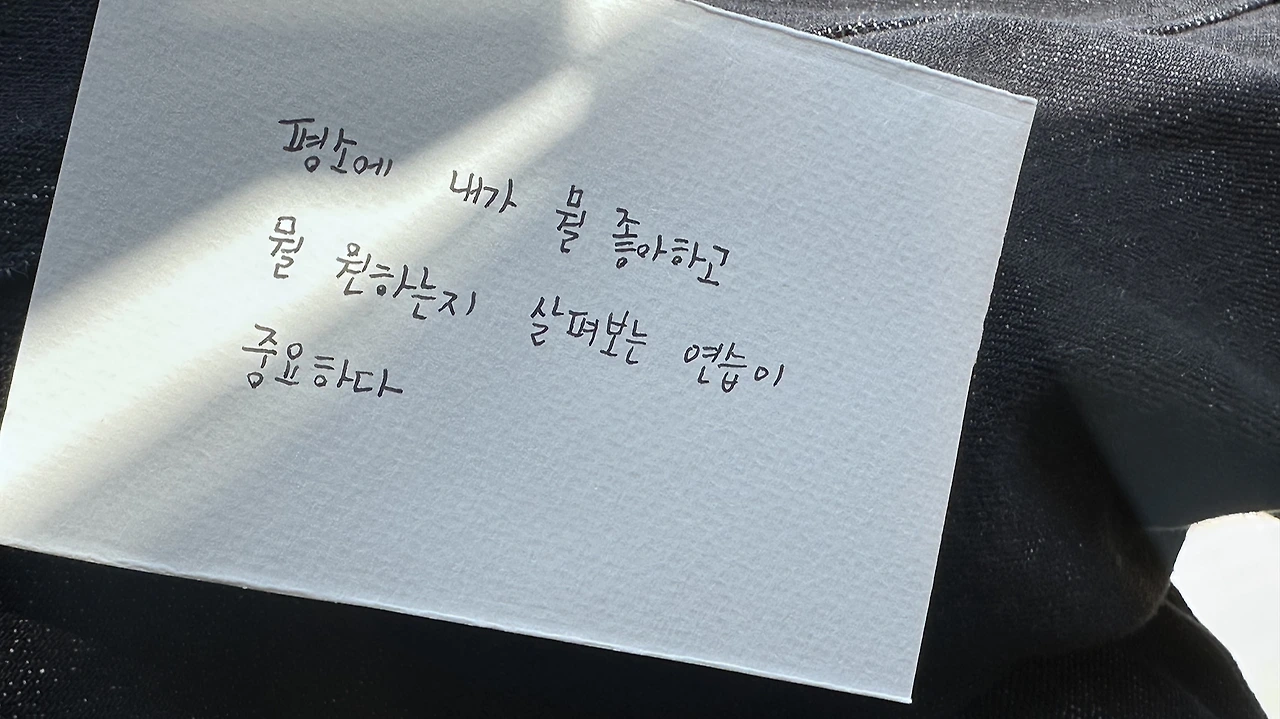 평소에 내가 뭘 좋아하고
뭘 원하는지 살펴보는 연습이
중요하다